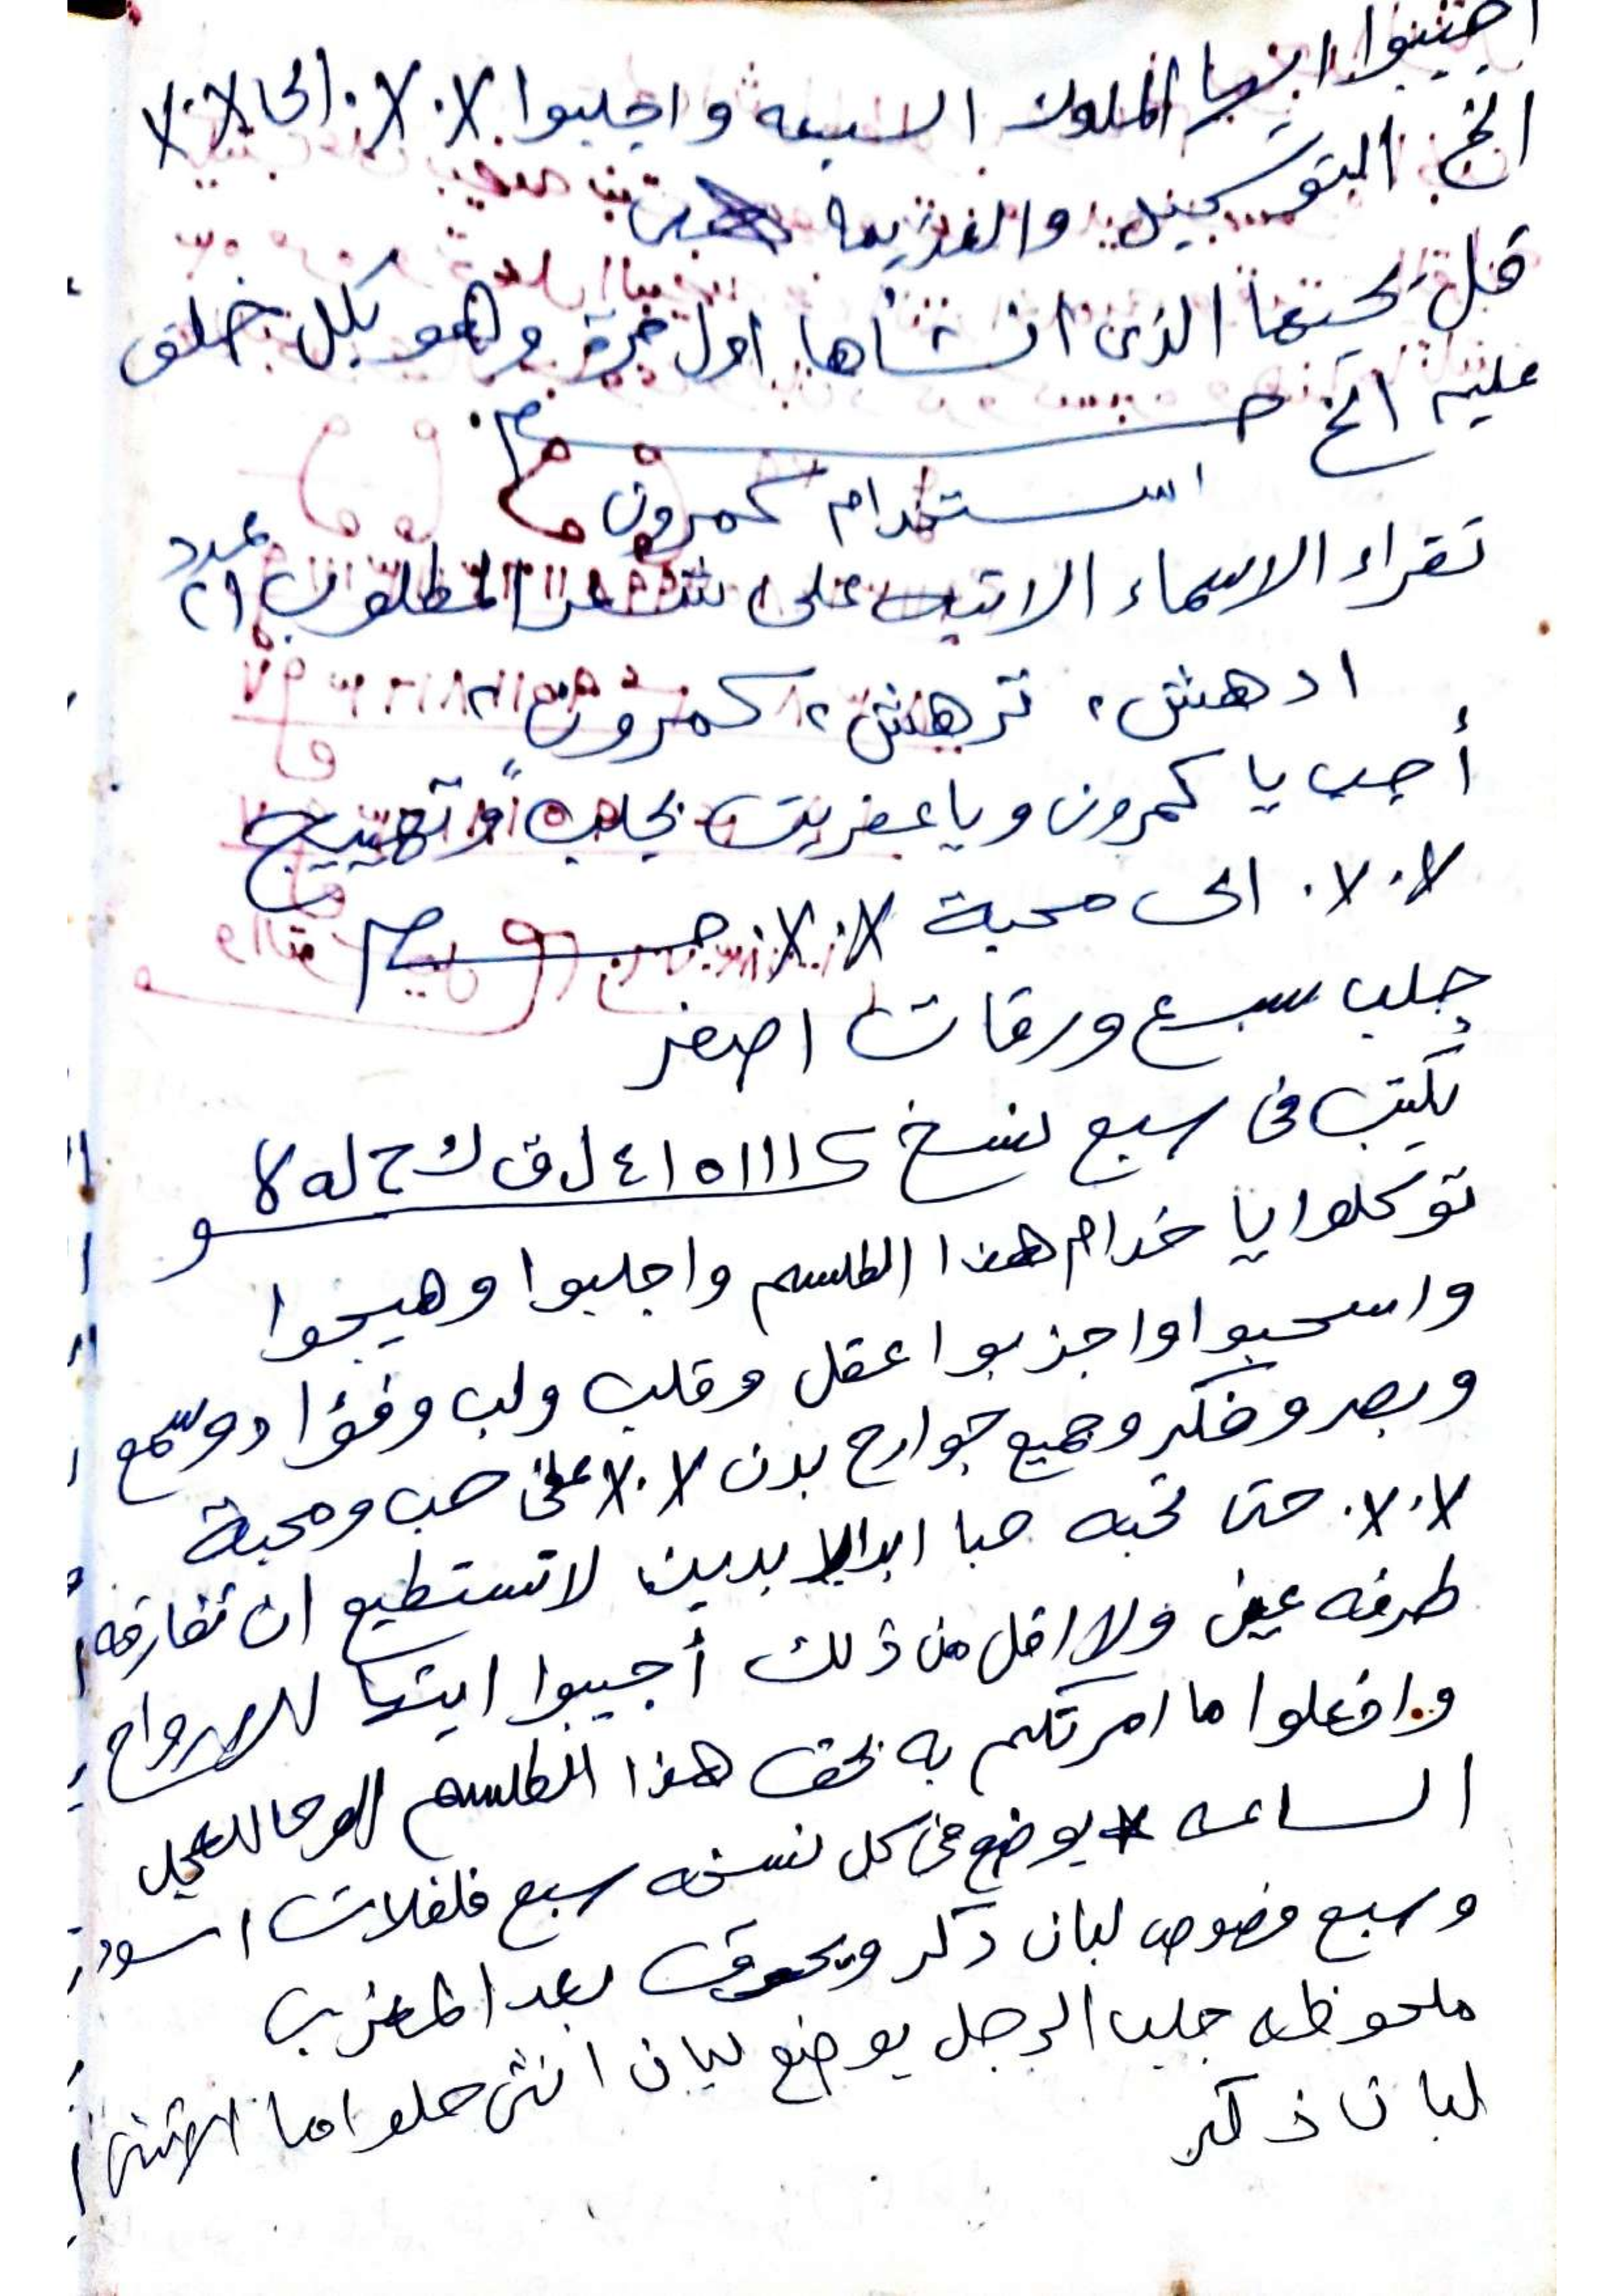 اجيبوا ايتها الملوك السبعه واجلبوا ٧.٧. الى ٧.٧
الخ التوكيل والعزيمه
قل يحيها الذى انشأها اول مرة وهو بكل خلق
عليم الخ
استخدام كمرون
تقراء الاسماء الاتيه على شعر المطلوب ٢١ عدد
ادهش، ترهش ٢ كمرون ٢
أجب يا كمرون ويا عفريت بجلب وتهييج
٧.٧. الى محبة ٧.٧.
جلب سبع ورقات اصفر
يكتب فى سبع نسخ ٤١٥١١١٢ ل ق ك ح له لا و
توكلوا يا خدام هذا الطلسم واجلبوا وهيجوا
واسحبوا واجذبوا عقل وقلب ولب وفؤاد وسمع
وبصر وفكر وجميع جوارح بدن ٧.٧ على حب ومحبة
٧.٧. حتى تحبه حبا ابد الابدين لا تستطيع ان تفارقه
طرفه عين ولا اقل من ذلك أجيبوا ايتها الارواح
وافعلوا ما امرتكم به بحق هذا الطلسم الوحا العجل
الساعه يوضع فى كل نسخه سبع فلفلات اسود
وسبع فصوص لبان ذكر ويحرق بعد المغرب
ملحوظه جلب الرجل يوضع لبان انثى حلو اما الانثى
لبان ذكر